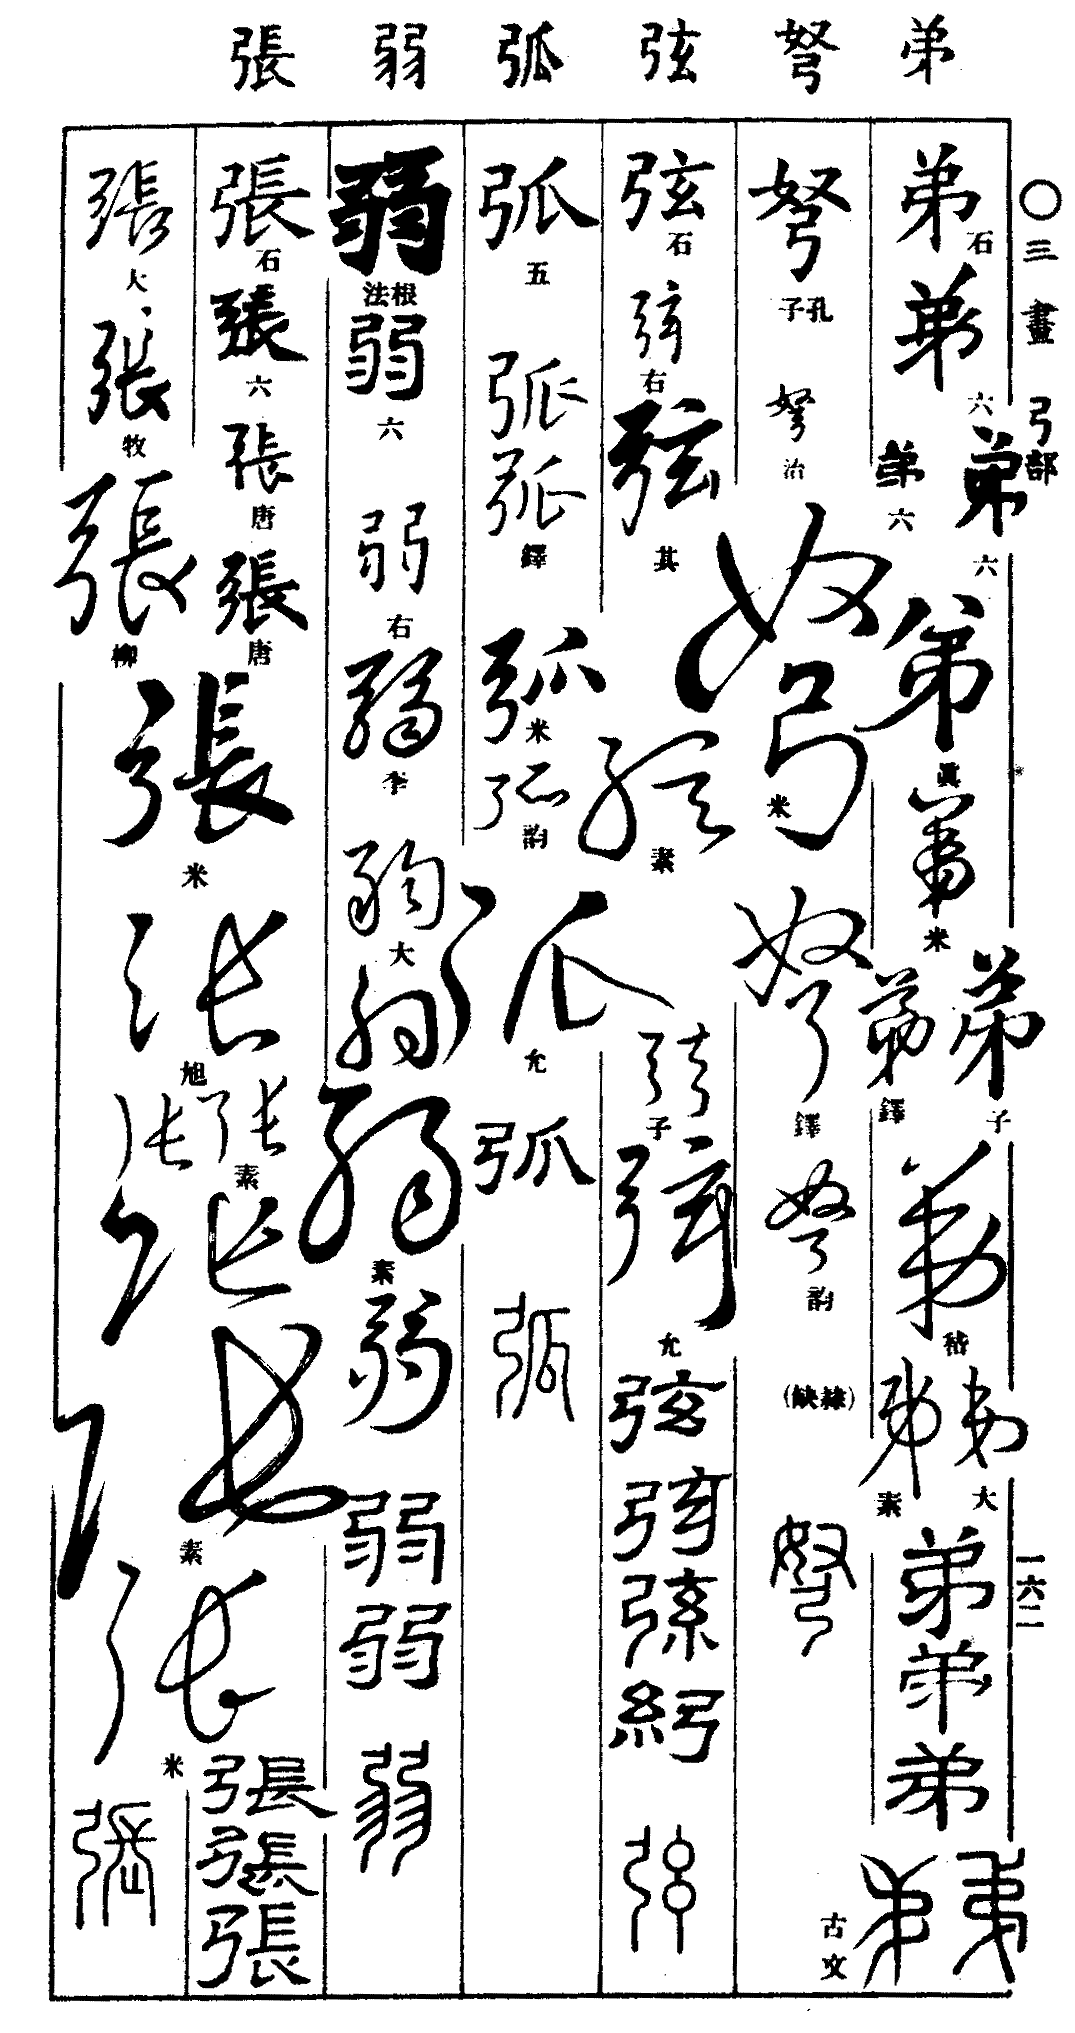 弟 弩 弦 弧 弱 張
〇三畫 弓部
一六二
弟 石
弟 六
弟 六
弟 六
弟 真
弟 米
弟 子
弟 鐸
弟 嵇
弟 大
弟 素
弟
弟
弟
弟
弟 古文
弩 孔子
弩 治
弩 米
弩 鐸
弩 韵
(隸缺)
弩
弦 石
弦 右
弦 其
弦 素
弦 子
弦 允
弦
弦
弦
弦
弦
弧 五
弧
弧 鐸
弧 米
弧 韵
弧 允
弧
弧
弱 根法
弱 六
弱 右
弱 李
弱 大
弱
弱 素
弱
弱
弱
弱
張 石
張 六
張 唐
張 唐
張 大
張 牧
張 柳
張 米
張 旭
張 素
張
張
張 素
張 米
張
張
張
張